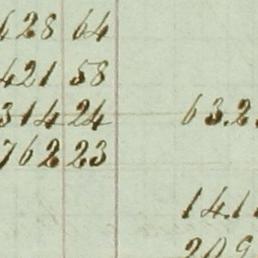 628 64
421 58
314 24 63.2
762 23
14.1
209